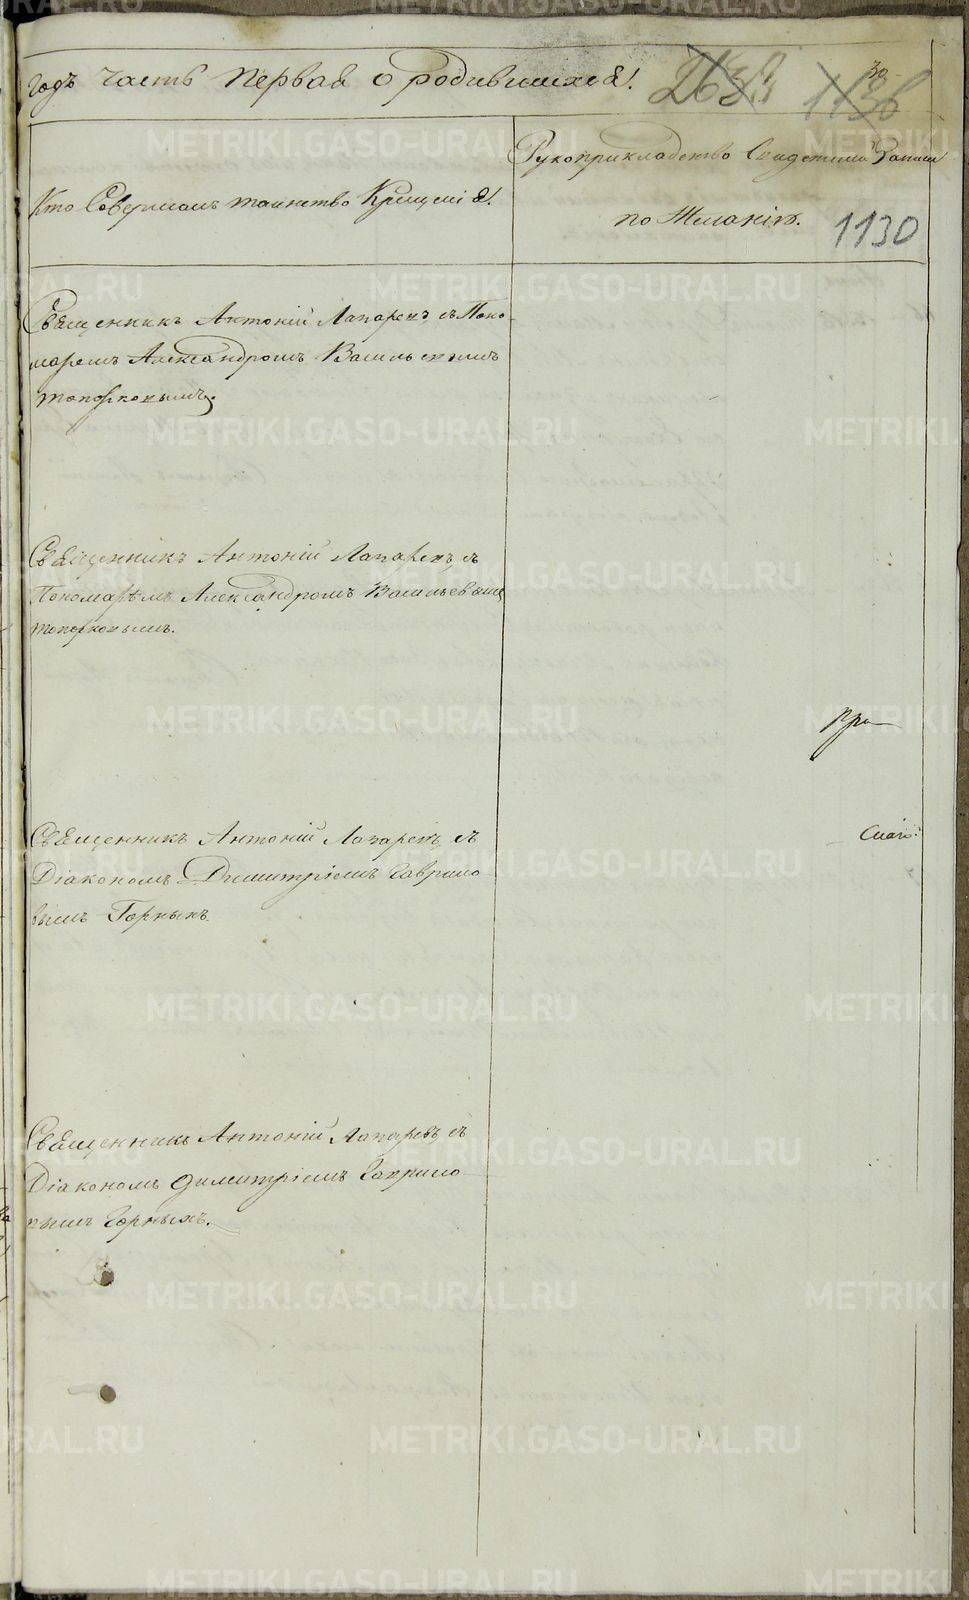 годъ часть первая о родившихся!
2633
1136
30
Кто Совершалъ таинство Крещенія!
Рукоприкладство Свидетелей Записи
по Желанію.
1130
Священникъ Антоній Лапаревъ съ Поно-
маремъ Александромъ Васильевымъ
топорковымъ.
Священникъ Антоній Лапаревъ съ
Пономарѣмъ Александромъ Васильевымъ
топорковымъ.
Священникъ Антоній Лапаревъ съ
Діакономъ Димитріемъ Гаврило-
вымъ Горныхъ
Священникъ Антоній Лапаревъ съ
Діакономъ Димитріемъ Гаврило-
вымъ Горныхъ.
METRIKI.GASO-URAL.RU